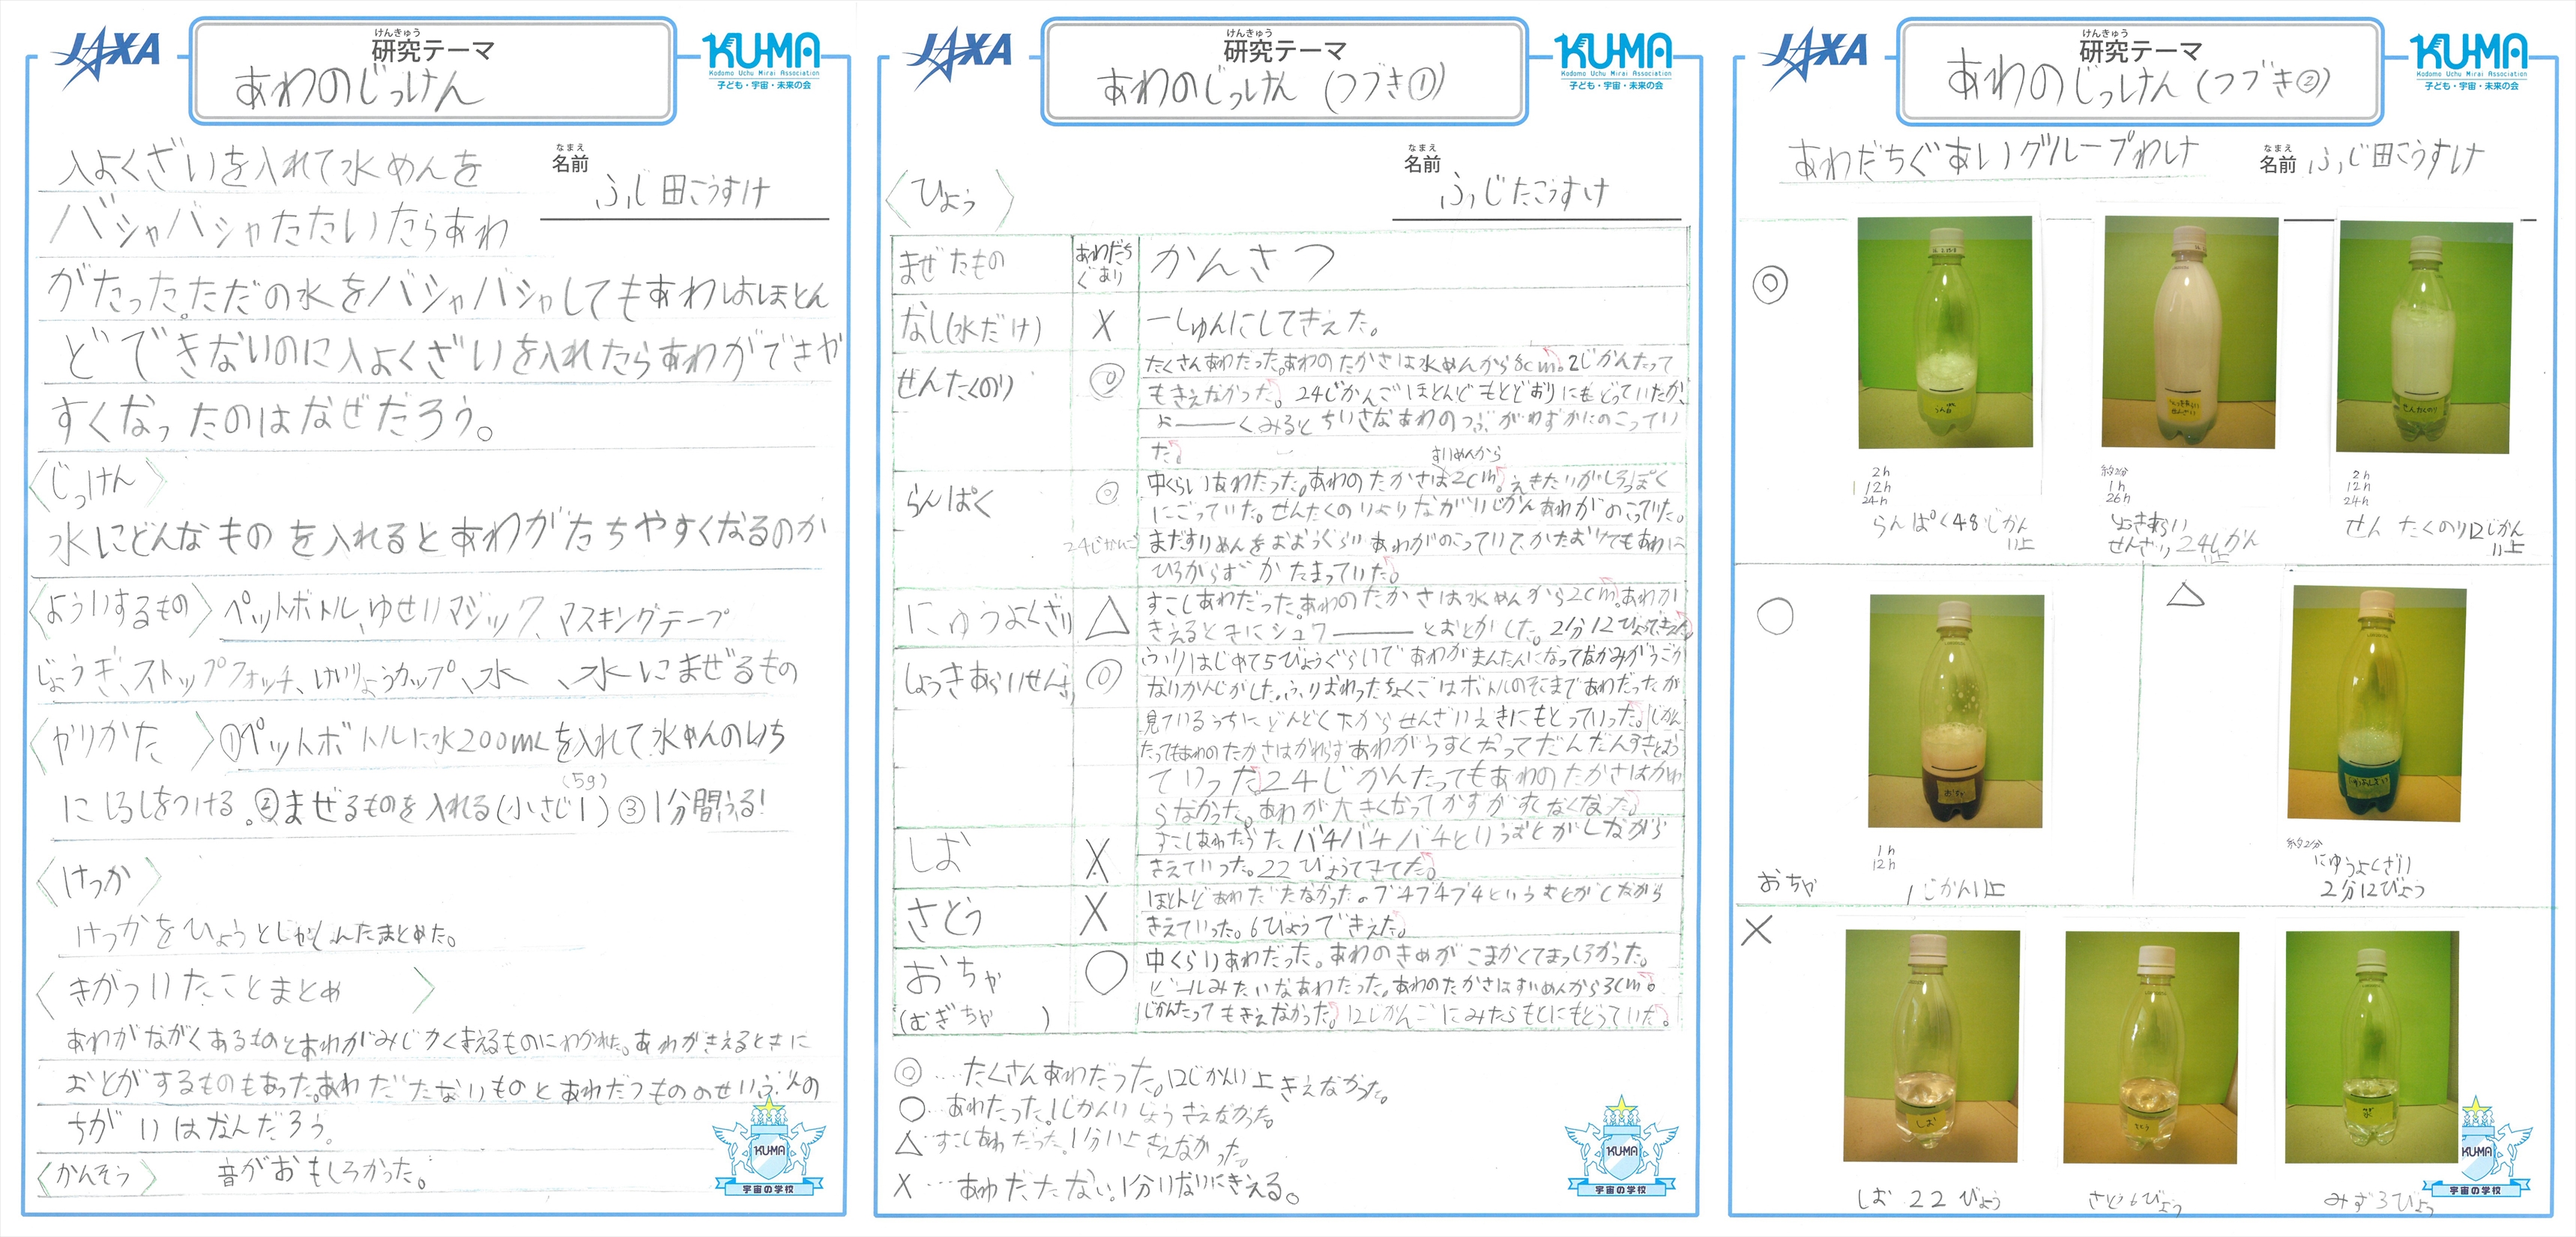 JAXA
けんきゅう
研究テーマ
あわのじっけん
KU-MA
Kodomo Uchu Mirai Association
子ども・宇宙・未来の会
なまえ
名前
ふじ田こうすけ
入よくざいを入れて水めんを
バシャバシャたたいたらあわ
がたった。ただの水をバシャバシャしてもあわはほとん
どできないのに入よくざいを入れたらあわができや
すくなったのはなぜだろう。
〈じっけん〉
水にどんなものを入れるとあわがたちやすくなるのか
〈よういするもの〉ペットボトル、ゆせいマジック、マスキングテープ
じょうぎ、ストップフォッチ、けいりょうカップ、水、水にまぜるもの
〈やりかた〉①ペットボトルに水200mLを入れて水めんのいち
にしるしをつける。②まぜるものを入れる(小さじ1)③1分間ふる!
(5g)
〈けっか〉
けっかをひょうとしゃしんにまとめた。
〈きがついたことまとめ〉
あわがながくあるものとあわがみじかくきえるものにわかれた。あわがきえるときに
おとがするものもあった。あわだたないものとあわだつもののせいぶんの
ちがいはなんだろう。
〈かんそう〉 音がおもしろかった。
KU-MA
宇宙の学校
JAXA
けんきゅう
研究テーマ
あわのじっけん(つづき①)
KU-MA
Kodomo Uchu Mirai Association
子ども・宇宙・未来の会
なまえ
名前
ふじたこうすけ
〈ひょう〉
まぜたもの あわだちぐあい かんさつ
なし(水だけ) X 一しゅんにしてきえた。
せんたくのり ◎ たくさんあわだった。あわのたかさは水めんから8cm。2じかんたって
もきえなかった。24じかんごほとんどもとどおりにもどっていたが、
よーーくみるとちいさなあわのつぶがわずかにのこってい
た。
らんぱく ◎ 中くらいあわだった。あわのたかさはすいめんから2cm。えきたいがしろっぽく
にごっていた。せんたくのりよりながいじかんあわがのこっていた。
24じかんご まだすいめんをおおうぐらいあわがのこっていて、かたむけてもあわに
ひろがらずかたまっていた。
にゅうよくざい △ すこしあわだった。あわのたかさは水めんから2cm。あわが
きえるときにシュワーーとおとがした。2分12びょうできえた。
しょっきあらいせんざい ◎ ふりはじめて5びょうぐらいであわがまんたんになってなかみがうごか
ないかんじがした。ふりおわったちょくごはボトルのそこまであわだったが
見ているうちにどんどん下からせんざいえきにもどっていった。じかん
たってもあわのたかさはかわらずあわがうすくなってだんだんすきとおっ
ていった。24じかんたってもあわのたかさはかわ
らなかった。あわが大きくなってかずがすくなくなった。
しお X すこしあわだった。バチバチバチというおとがしながら
きえていった。22びょうできえた。
さとう X ほとんどあわだたなかった。プチプチプチというおとがしながら
きえていった。6びょうできえた。
おちゃ ○ 中くらいあわだった。あわのきめがこまかくてまっしろかった。
(むぎちゃ) ビールみたいなあわだった。あわのたかさはすいめんから3cm。
じかんたってもきえなかった。12じかんごにみたらもとにもどっていた。
◎‥‥たくさんあわだった。12じかんい上きえなかった。
○‥あわたった。1じかんいじょうきえなかった。
△‥すこしあわだった。1分い上きえなかった。
X‥‥あわだたない。1分いないにきえる。
KU-MA
宇宙の学校
JAXA
けんきゅう
研究テーマ
あわのじっけん(つづき②)
KU-MA
Kodomo Uchu Mirai Association
子ども・宇宙・未来の会
あわだちぐあいグループわけ
なまえ
名前
ふじ田こうすけ
◎
せんたくのり
2h
12h
24h
らんぱく48じかん
い上
約2分
1h
26h
しょっきあらい
せんざい24じかん
い上
2h
12h
24h
せんたくのり12じかん
い上
○
おちゃ
1h
12h
おちゃ 1じかんい上
△
にゅうよくざい
約2分
にゅうよくざい
2分12びょう
X
しお
さとう
水
しお 22びょう
さとう6びょう
みず3びょう
KU-MA
宇宙の学校